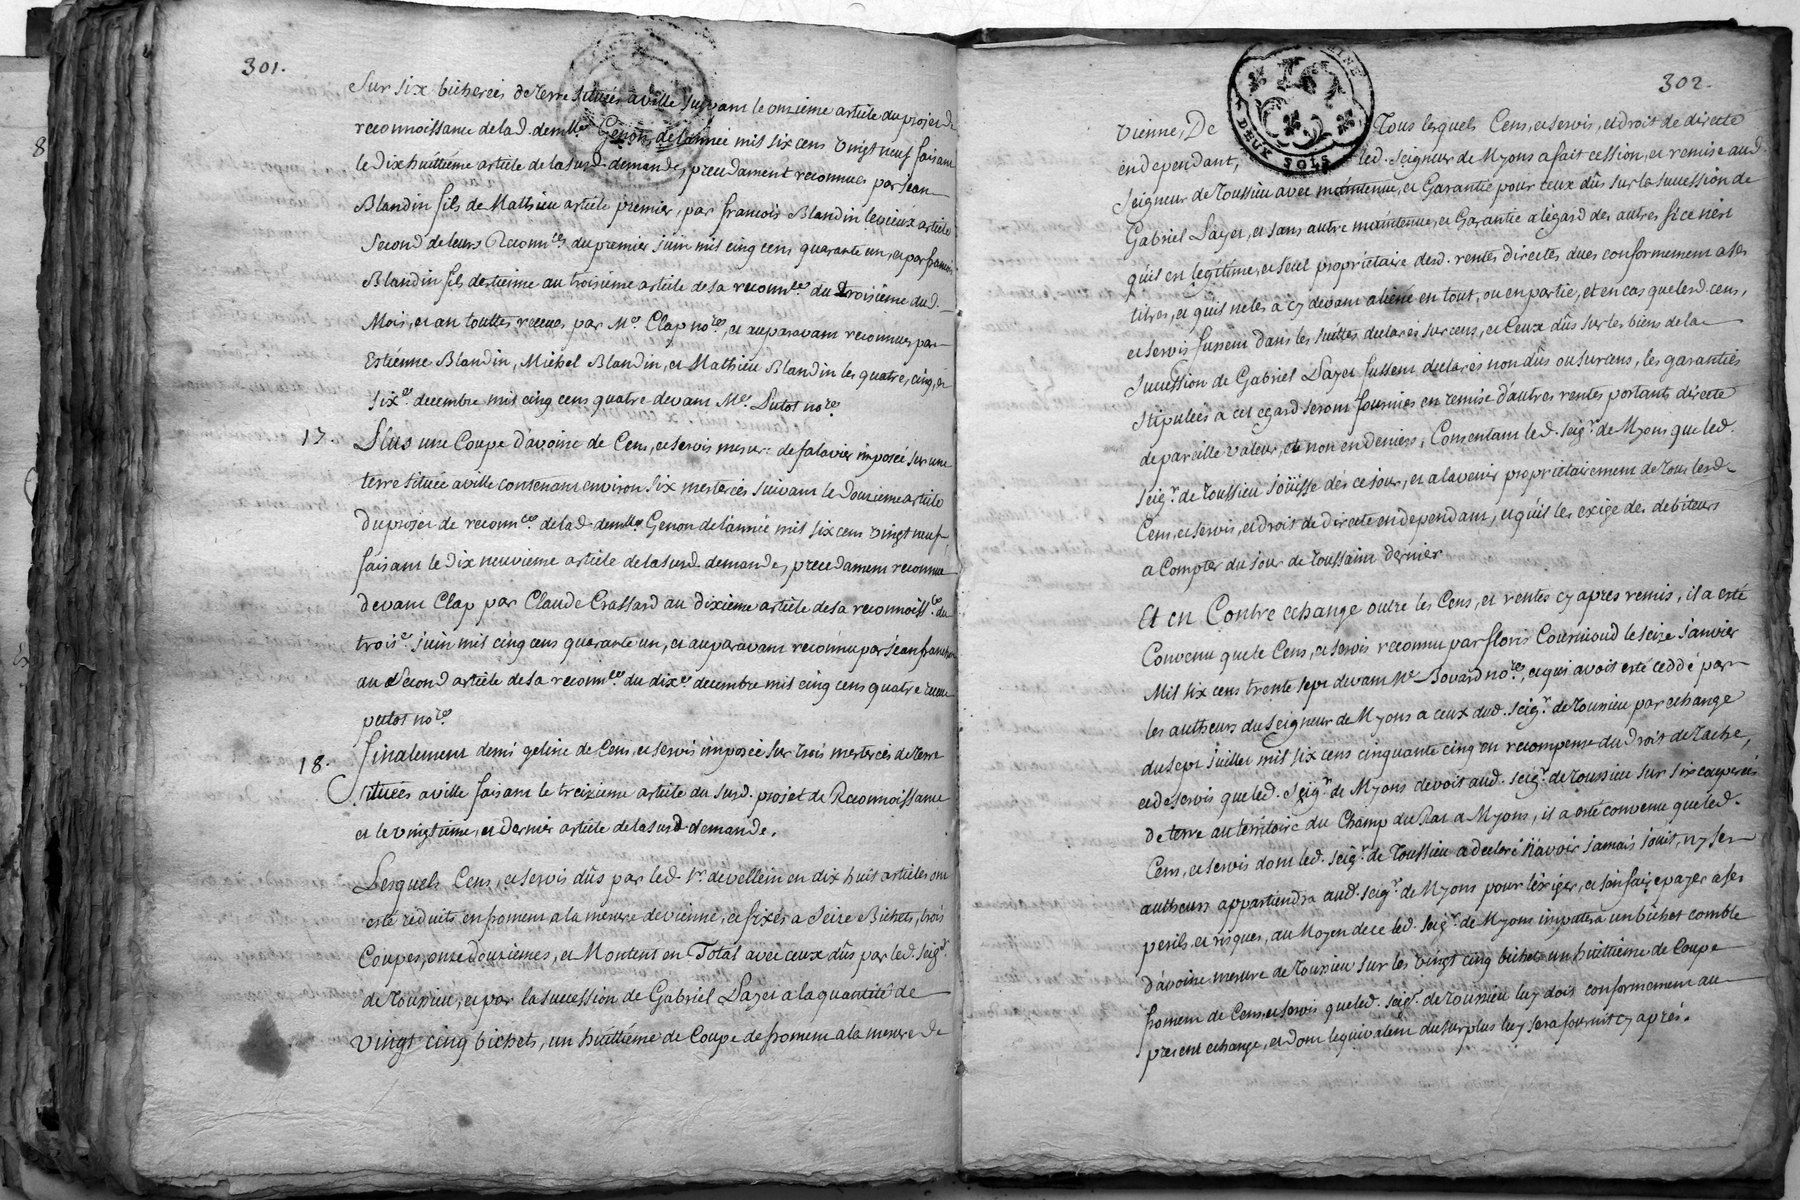 301.
Sur six bicherées de terre situées a ville suivant le onzieme article du projet de
reconnoissance de lad. demlle Genon de l'année mil six cens vingt neuf faisant
le dix huittième article de la susd. demande, precedament reconnues par Jean
Blandin fils de Mathieu article premier, par francois Blandin le vieux article
Second de leurs Reconnces du premier juin mil cinq cens quarante un, et par francois
Blandin fils d'estienne au troisième article de sa reconnce du troisième dud.
Mois, et an touttes receues par Me Clap nore, et auparavant reconnues par
Estienne Blandin, Michel Blandin, et Mathieu Blandin les quatre, cinq, et
six e decembre mil cinq cens quatre devant Me Putot nore
17. Plus une Coupe d'avoine de Cens, et servis mesure de falavier imposée sur une
terre située a ville contenant environ six meterées suivant le douzieme article
du projet de reconnce de lad. demlle Genon de l'année mil six cens vingt neuf,
faisant le dix neuvieme article de la susd. demande, precedament reconnue
devant Clap par Claude Crassard au dixieme article de sa reconnoissce du
trois e juin mil cinq cens quarante un, et auparavant reconnu par Jean
au second article de sa reconnce du dix e decembre mil cinq cens quatre receue
putot nore
18. finalement demi geline de Cens, et servis imposée sur trois meterées de terre
situées a ville faisant le treizieme article du susd. projet de Reconnoissance
et le vingtieme, et dernier article de la susd demande.
Lesquels Cens, et servis dûs par led. Sr de vellein en dix huit articles ont
esté réduits en froment a la mesure de vienne, et fixés a seize Bichets, trois
Coupes, onze douziemes, et Montent en Total avec ceux dûs par led. seigr
de Toussieu, et par la succession de Gabriel Payet a la quantité de
vingt cinq bichets, un huittième de Coupe de froment a la mesure de
302.
DEUX SOLS
Vienne, De Tous lesquels Cens, et servis, et droit de directe
en dependant, led. Seigneur de Myons a fait cession, et remise aud.
Seigneur de Toussieu avec maintenue, et Garantie pour ceux dûs sur la succession de
Gabriel Payet, et sans autre maintenue, et Garantie a l'egard des autres si ce n'est
qu'il en legitime, et seul proprietaire desd. rentes directes dues conformement a ses
titres, et qu'il ne les a cy devant aliéné en tout, ou en partie, et en cas que lesd. cens,
et servis fussent dans les suittes declarés surcens, et Ceux dûs sur les biens de la
succession de Gabriel Payet fussent declarés non dûs ou surcens, les garanties
stipulées a cet egard seront fournies en remise d'autres rentes portants directe
de pareille valeur, et non en deniers, Consentant led. seigr de Myons que led.
seigr de Toussieu joüisse dés ce jour, et a l'avenir proprietairement de tous lesd.
Cens, et servis, et droit de directe en dependant, et qu'il les exige des debiteurs
a Compter du jour de Toussaint dernier
Et en Contre echange outre les Cens, et rentes cy apres remis, il a esté
Convenu que le Cens, et servis reconnu par floris Cournioud le seize janvier
Mil six cens trente sept devant Me Bovard nore, et qui avoit esté ceddé par
les autheurs du seigneur de Myons a ceux dud. seigr de Toussieu par echange
du sept juillet mil six cens cinquante cinq en recompense du Droit de tache,
et de servis que led. seigr de Myons devoit aud. seigr de Toussieu sur six couperées
de terre au territoire du Champ du Rat a Myons, il a esté convenu que led.
Cens, et servis dont led. seigr de Toussieu a declaré n'avoir jamais jouit, ny ses
autheurs appartiendra aud. seigr de Myons pour l'exiger, et s'en faire payer a ses
perils, et risques, au Moyen de ce led. seigr de Myons imputera un bichet comble
d'avoine mesure de Toussieu sur les vingt cinq bichets un huittieme de Coupe
froment de Cens, et servis que led. seigr de Toussieu luy doit conformement au
present echange, et dont l'equivalent du surplus luy sera fournit cy aprés.